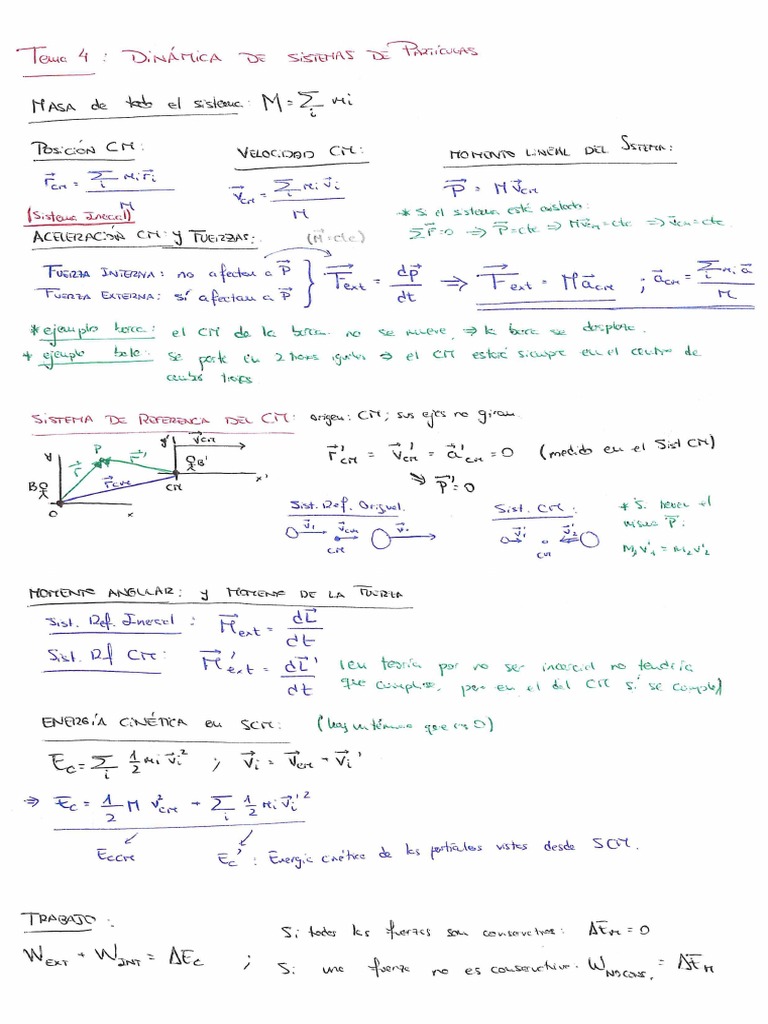 Tema 4: DINÁMICA DE SISTEMAS DE PARTÍCULAS
MASA de todo el sistema: M = Σᵢ mᵢ
POSICIÓN CM:
r⃗_CM = Σᵢ mᵢ r⃗ᵢ / M
VELOCIDAD CM:
v⃗_CM = Σᵢ mᵢ v⃗ᵢ / M
MOMENTO LINEAL DEL SISTEMA:
P⃗ = M v⃗_CM
* Si el sistema está aislado:
ΣF⃗=0 ⇒ P⃗=cte ⇒ Mv⃗_CM=cte ⇒ v⃗_CM=cte.
(Sistema Inercial)
ACELERACIÓN CM: y FUERZAS: (M=cte)
FUERZA INTERNA: no afectan a P⃗
FUERZA EXTERNA: sí afectan a P⃗
F⃗_ext = dp⃗/dt ⇒ F⃗_ext = M a⃗_CM ; a⃗_CM = Σᵢ mᵢ a⃗ / M
* ejemplo barca: el CM de la barca no se mueve, ⇒ la barca se desplaza.
* ejemplo bala: se parte en 2 trozos iguales ⇒ el CM estará siempre en el centro de
ambos trozos
SISTEMA DE REFERENCIA DEL CM: origen: CM; sus ejes no giran.
y P r⃗ r⃗' r⃗_CM B O x
y' v⃗_CM B' CM x'
r⃗'_CM = v⃗'_CM = a⃗'_CM = 0 (medido en el Sist CM)
⇒ P⃗'=0
Sist. Ref. Original.
v⃗₁ v⃗_CM v⃗₂
CM
Sist. CM:
v⃗₁' v⃗₂'
CM
* Si tienen el
mismo P⃗:
M₁v'₁ = M₂v'₂
MOMENTO ANGULAR: y MOMENTO DE LA FUERZA
Sist. Ref. Inercial: M⃗_ext = dL⃗/dt
Sist. Rf CM: M⃗'_ext = dL⃗'/dt (en teoría por no ser inercial no tendría
que cumplirse, pero en el del CM sí se cumple)
ENERGÍA CINÉTICA en SCM: (hay un término que es 0)
E_C = Σᵢ ½ mᵢ v⃗ᵢ² ; v⃗ᵢ = v⃗_CM + v⃗ᵢ'
⇒ E_C = ½ M v²_CM + Σᵢ ½ mᵢ v⃗ᵢ'²
E_CCM E_C' : Energía cinética de las partículas vistas desde SCM.
TRABAJO:
W_EXT + W_INT = ΔE_C ;
Si todas las fuerzas son conservativas: ΔE_M = 0
Si una fuerza no es conservativa: W_NOCONS. = ΔE_M